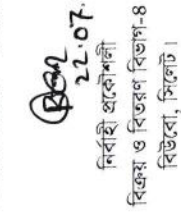 22.07.
নির্বাহী প্রকৌশলী
বিক্রয় ও বিতরণ বিভাগ-৪
বিউবো, সিলেট।